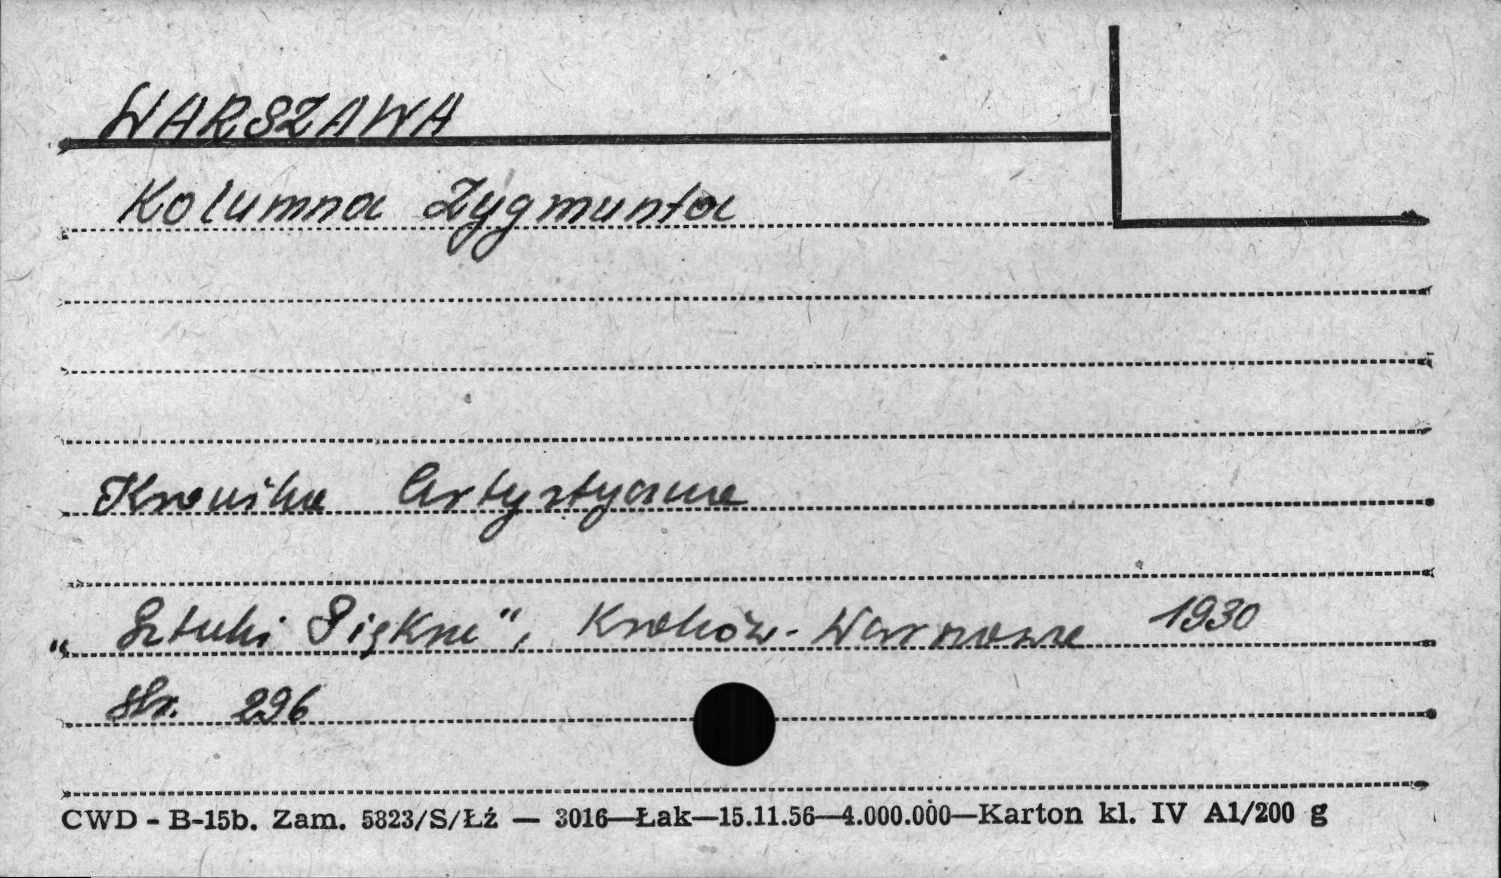 WARSZAWA
Kolumna Zygmunta
Kronika Artystyczna
„Sztuki Piękne", Kraków-Warszawa 1930
str. 296
CWD - B-15b. Zam. 5823/S/Łź — 3016—Łak—15.11.56—4.000.000—Karton kl. IV A1/200 g